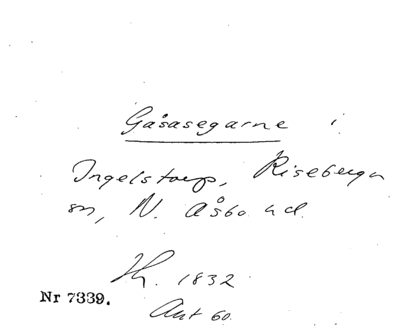 Gåsasegarne i
Ingelstorp, Riseberga
sn, N. Åsbo hd.
Th. 1832
Nr 7339.
Ant 60.